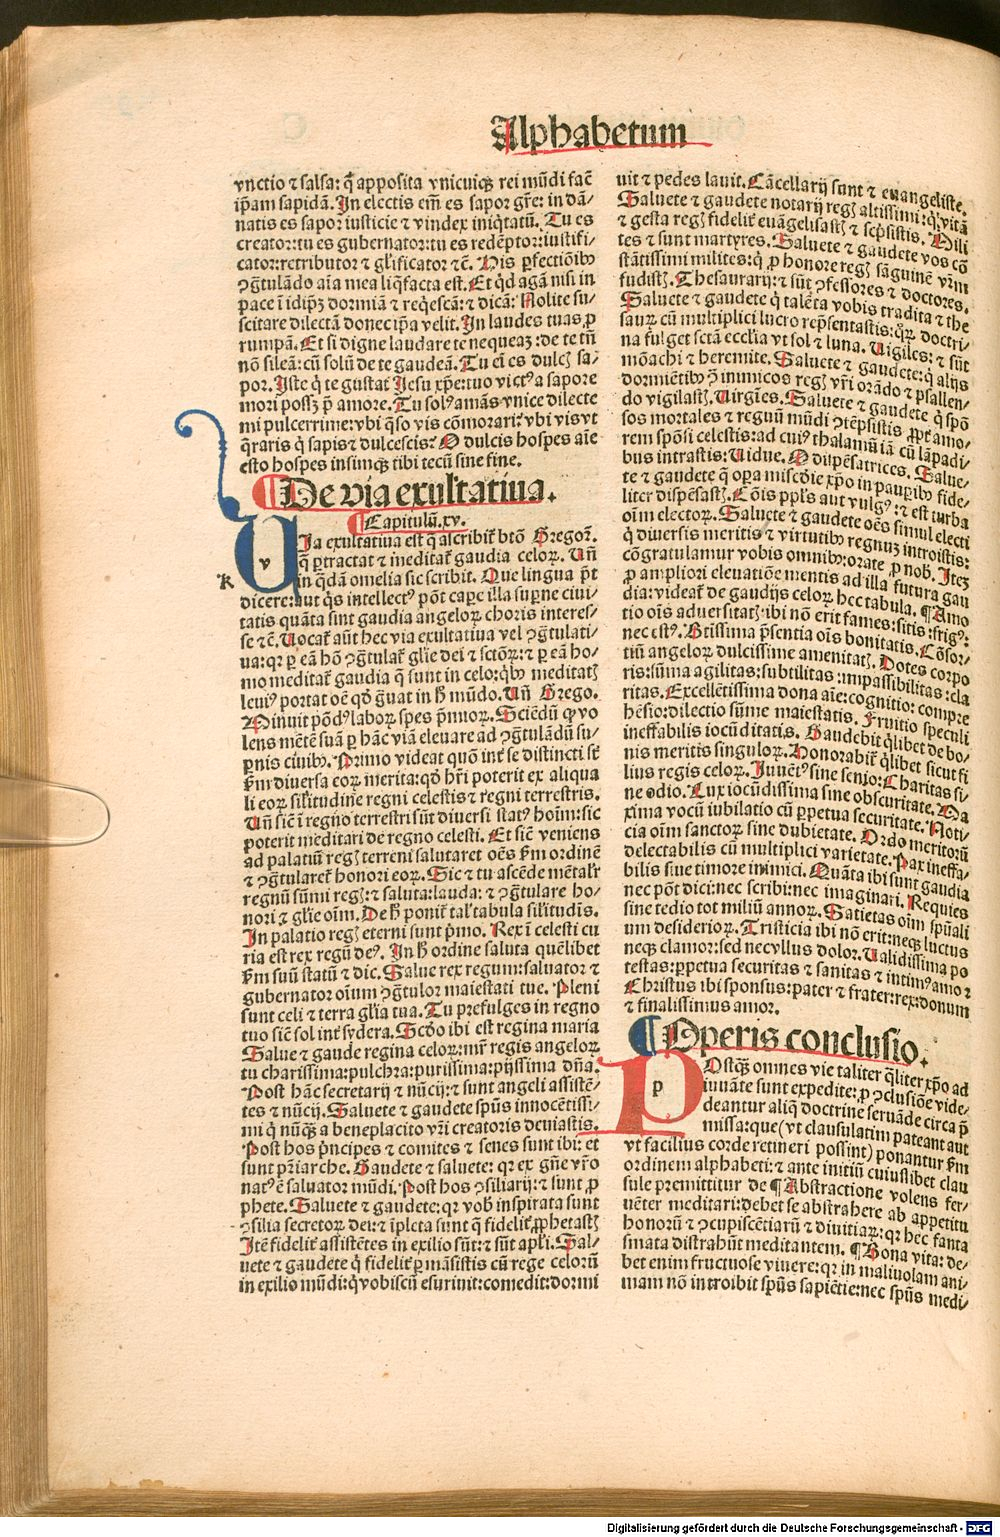 Alphabetum
vnctio ⁊ salsa: q̃ apposita vnicuiqȝ rei mũdi facẽ
ip̃am sapidã. In electis em̃ es sapor gr̃e: in dã/
natis es sapor iusticie ⁊ vindex iniq̃tatũ. Tu es
creator: tu es gubernator: tu es redẽptor: iustifi/
cator: retributor ⁊ gl̃ificator ⁊c̃. His ꝑfectiõibꝰ
ꝯgr̃tulãdo aĩa mea liq̃facta est. Et qͥd agã nisi in
pace ĩ idip̃ȝ dormiã ⁊ req̃escã: ⁊ dicã: Nolite su/
scitare dilectã donec ip̃a velit. In laudes tuas ꝓ
rumpã. Et si digne laudare te nequeaȝ: de te tñ
nõ sileã: cũ solũ de te gaudeã. Tu em̃ es dulcꝭ sa/
por. Iste qͥ te gustat Iesu xp̃e: tuo victꝰ a sapore
mori possȝ p̃ amore. Tu solꝰ amãs vnice dilecte
mi pulcerrime: vbi q̃so vis cõmorari: vbi vis vt
q̃raris qͥ sapis ⁊ dulcescis? O dulcis hospes aĩe
esto hospes insimqȝ tibi tecũ sine fine.
De via exultatiua.
Capitulũ.xv.
v
K
Ia exultatiua est q̃ ascribit̃ btõ Gregor̃.
q̃ ꝑtractat ⁊ meditat̃ gaudia celoꝝ. Uñ
in q̃dã omelia sic scribit. Que lingua p̃t
dicere: aut qͥs intellectꝰ põt caꝑe illa suꝑne ciui/
tatis quãta sint gaudia angeloꝝ choris interes/
se ⁊c̃. Uocat̃ aũt hec via exultatiua vel ꝯgr̃tulati/
ua: qꝛ ꝑ eã hõ ꝯgr̃tulat̃ gl̃ie dei ⁊ sctõꝝ: ⁊ ꝑ eã ho/
mo meditat̃ gaudia q̃ sunt in celo: qͥbꝰ meditatꝭ
leuiꝰ portat oẽ qõ g̃uat in ħ mũdo. Uñ Grego.
Minuit põdꝰ laboꝝ spes p̃mioꝝ. Sciẽdũ ꝙ vo
lens mẽtẽ suã ꝑ hãc viã eleuare ad ꝯgr̃tulãdũ su/
ꝑnis ciuibꝰ. Primo videat quõ int̃ se distincti s̃t
ẞm diuersa eoꝝ merita: qõ hr̃i poterit ex aliqua
li eoꝝ sil̃itudine regni celestis ⁊ regni terrestris.
Uñ sic̃ ĩ regno terrestri sũt diuersi statꝰ hoĩm: sic
poterit meditari de regno celesti. Et sic̃ veniens
ad palatiũ regꝭ terreni salutaret oẽs ẞm ordinẽ
⁊ ꝯgr̃tularet̃ honori eoꝝ. Sic ⁊ tu ascẽde mẽtal̃r
regnũ sũmi regꝭ: ⁊ saluta: lauda: ⁊ ꝯgr̃tulare ho/
nori ⁊ gl̃ie oĩm. De ħ ponit̃ tal̃ tabula sil̃itudĩs.
In palatio regꝭ eterni sunt p̃mo. Rex ĩ celesti cu
ria est rex regũ deꝰ. In ħ ordine saluta quẽlibet
ẞm suũ statũ ⁊ dic. Salue rex regum: saluator ⁊
gubernator oĩum ꝯgr̃tulor maiestati tue. Pleni
sunt celi ⁊ terra gl̃ia tua. Tu prefulges in regno
tuo sic̃ sol int̃ sydera. Scðo ibi est regina maria
Salue ⁊ gaude regina celoꝝ: mr̃ regis angeloꝝ
tu charissima: pulchra: purissima: pijssima dña.
Post hãc secretarij ⁊ nũcij: ⁊ sunt angeli assistẽ/
tes ⁊ nũcij. Saluete ⁊ gaudete spũs innocẽtissi/
mi qͥ nũqȝ a beneplacito vr̃i creatoris deuiastis.
Post hos p̃ncipes ⁊ comites ⁊ senes sunt ibi: et
sunt pr̃iarche. Gaudete ⁊ saluete: qꝛ ex gñe vr̃o
natꝰ ẽ saluator mũdi. Post hos ꝯsiliarij: ⁊ sunt ꝓ
phete. Saluete ⁊ gaudete: qꝛ vob̃ inspirata sunt
ꝯsilia secretoꝝ dei: ⁊ ĩpleta sunt q̃ fidelit̃ ꝓphetastꝭ
Itẽ fidelit̃ assistẽtes in exilio sũt: ⁊ sũt apl̃i. Sal/
uete ⁊ gaudete qͥ fidelit̃ ꝑmãsistis cũ rege celorũ
in exilio mũdi: qͥ vobiscũ esuriuit: comedit: dormi
uit ⁊ pedes lauit. Cãcellarij sunt ⁊ euangeliste.
Saluete ⁊ gaudete notarij regꝭ altissimi: qͥ vitã
⁊ gesta regꝭ fidelit̃ euãgelisastꝭ ⁊ sc̃psistis. Mili
tes ⁊ sunt martyres. Saluete ⁊ gaudete vos cõ
stãtissimi milites: qͥ ꝓ honore regꝭ sãguinẽ vr̃m
fudistꝭ. Thesaurarij: ⁊ sũt ꝯfessores ⁊ doctores.
Saluete ⁊ gaudete qͥ talẽta vobis tradita ⁊ the
sauꝝ cũ multiplici lucro rep̃sentastis: qͦꝝ doctri/
na fulget sctã ecclĩa vt sol ⁊ luna. Uigiles: ⁊ sũt
mõachi ⁊ heremite. Saluete ⁊ gaudete: qͥ alijs
dormiẽtibꝰ ꝯ̃ inimicos regꝭ vr̃i orãdo ⁊ psallen/
do vigilastꝭ. Uirgĩes. Saluete ⁊ gaudete qͥ spõ
sos mortales ⁊ regnũ mũdi ꝯtẽpsistis ꝓpt̃ amo/
rem spõsi celestis: ad cuiꝰ thalamũ iã cũ lãpadi/
bus intrastis: Uidue. O dispẽsatrices. Salue/
te ⁊ gaudete q̃ oꝑa mĩscðie xp̃o in pauꝑibꝰ fide/
liter dispẽsastꝭ. Cõis ppl̃s aut vulgꝰ: ⁊ est turba
oĩm electoꝝ. Saluete ⁊ gaudete oẽs simul electi
qͥ diuersis meritis ⁊ virtutibꝰ regnuȝ introistis:
cõgratulamur vobis omnibꝰ: orate ꝓ nob̃. Iteȝ
ꝓ ampliori eleuatiõe mentis ad illa futura gau
dia: videat̃ de gaudijs celoꝝ hec tabula. ¶Amo
tio oĩs aduersitatꝭ: ibi nõ erit fames: sitis: frigꝰ:
nec estꝰ. Btissima p̃sentia oĩs bonitatis. Cõsor/
tiũ angeloꝝ dulcissime amenitatꝭ. Dotes corpo
ris: sũma agilitas: subtilitas: impassibilitas: cla
ritas. Excellẽtissima dona aĩe: cognitio: compre
hẽsio: dilectio sũme maiestatis. Fruitio speculi
ineffabilis iocũditatis. Gaudebit qͥlibet de bo/
nis meritis singuloꝝ. Honorabit̃ qͥlibet sicut fi
lius regis celoꝝ. Iuuẽtꝰ sine senio: Charitas si/
ne odio. Lux iocũdissima sine obscuritate. Ma
xima vocũ iubilatio cũ ꝑpetua securitate. Noti/
cia oĩm sanctoꝝ sine dubietate. Ordo meritorũ
delectabilis cũ multiplici varietate. Pax ineffa/
bilis siue timore inimici. Quãta ibi sunt gaudia
nec põt dici: nec scribi: nec imaginari. Requies
sine tedio tot miliũ annoꝝ. Satietas oĩm spũali
um desiderioꝝ. Tristicia ibi nõ erit: neqȝ luctus
neqȝ clamor: sed nec vllus dolor. Ualidissima po
testas: ꝑpetua securitas ⁊ sanitas ⁊ intimꝰ amor
Christus ibi sponsus: pater ⁊ frater: rex: donum
⁊ finalissimus amor.
¶ Operis conclusio.
p
Ostqȝ omnes vie taliter qͣliter xp̃o ad
iuuãte sunt expedite: ꝓ ꝯclusiõe vide/
deantur aliq̃ doctrine seruãde circa p̃
missa: que (vt clausulatim pateant aut
vt facilius corde retineri possint) ponantur ẞm
ordinem alphabeti: ⁊ ante initiũ cuiuslibet clau
sule premittitur de ¶Abstractione volens fer/
uẽter meditari: debet se abstrahere ab appetitu
honorũ ⁊ ꝯcupiscẽtiarũ ⁊ diuitiaꝝ: qꝛ hec fanta
smata distrahũt meditantem. ¶Bona vita: de/
bet enim fructuose viuere: qꝛ in maliuolam ani/
mam nõ introibit spũs sapiẽtie: nec spũs medi/
Digitalisierung gefördert durch die Deutsche Forschungsgemeinschaft - DFG